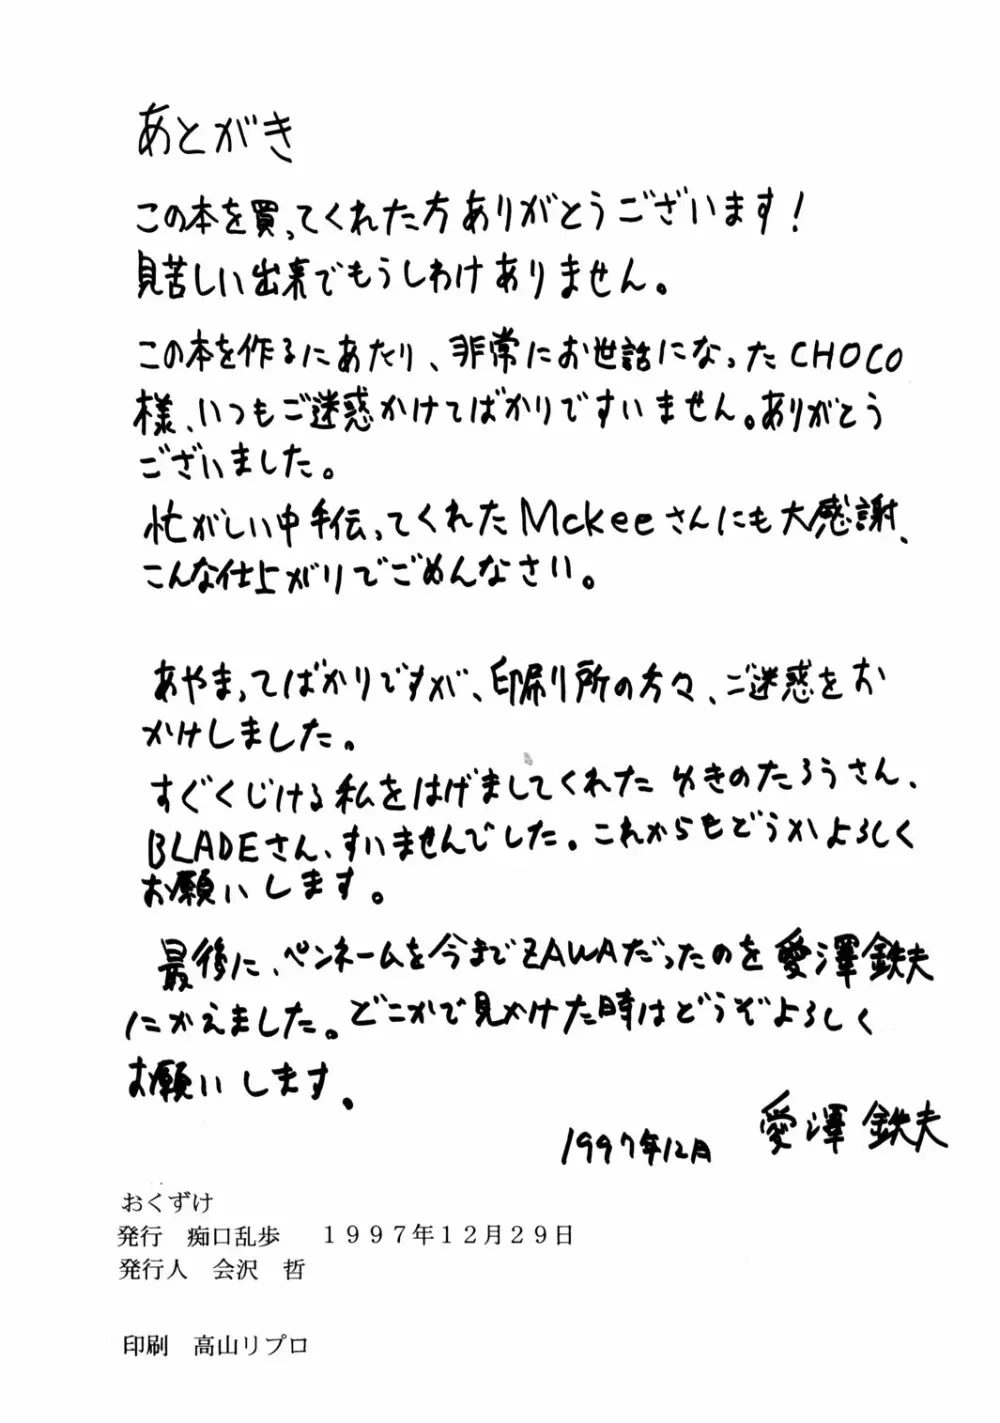 あとがき
この本を買ってくれた方ありがとうございます!
見苦しい出来でもうしわけありません。
この本を作るにあたり、非常にお世話になったCHOCO
様、いつもご迷惑かけてばかりですいません。ありがとう
ございました。
忙がしい中手伝ってくれたMckeeさんにも大感謝、
こんな仕上がりでごめんなさい。
あやまってばかりですが、印刷所の方々、ご迷惑をお
かけしました。
すぐくじける私をはげましてくれた ゆきのたろうさん、
BLADEさん、すいませんでした。これからもどうかよろしく
お願いします。
最後に、ペンネームを今までZAWAだったのを愛澤鉄夫
にかえました。どこかで見かけた時はどうぞよろしく
お願いします。
1997年12月 愛澤鉄夫
おくずけ
発行 痴口乱歩 1997年12月29日
発行人 会沢 哲
印刷 高山リプロ